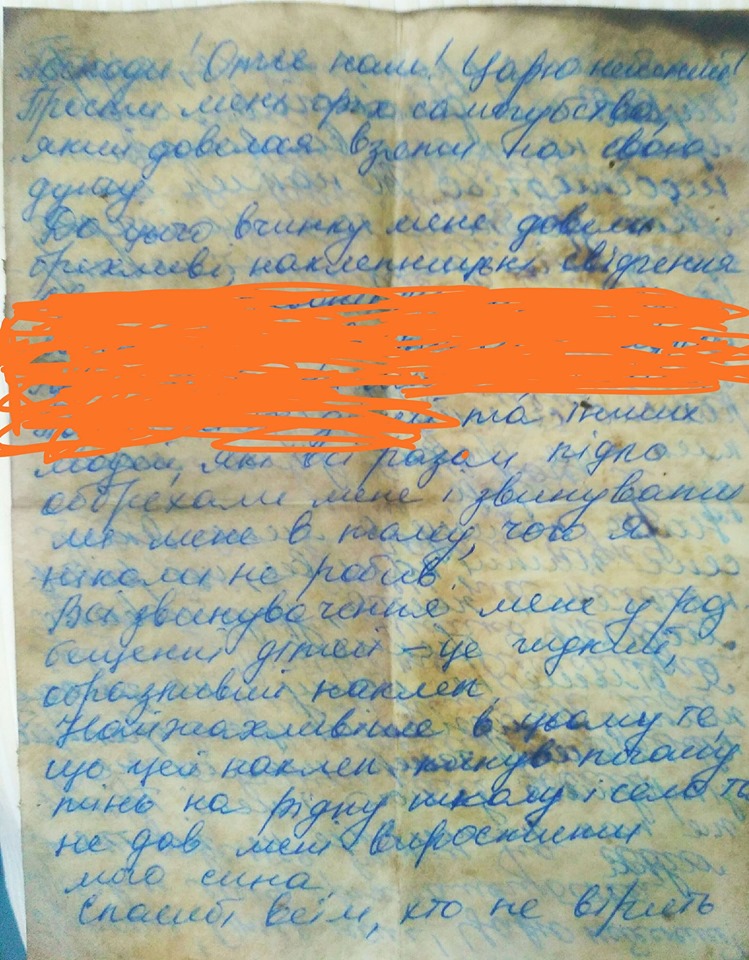 Господи! Отче наш! Царю небесний!
Прости мені гріх самогубства,
який довелося взяти на свою
душу
До цього вчинку мене довели
брехливі, наклепницькі свідчення
та інших
людей, які разом підло
оббрехали мене і звинувати
ли мене в тому, чого я
ніколи не робив.
Всі звинувачення мене у роз
бещенні дітей – це гидкий,
образливий наклеп
Найжахливіше в цьому те,
що цей наклеп кинув пляму
тінь на рідну школу і село та
не дав мені виростити
мого сина.
Спасибі всім, хто не вірить